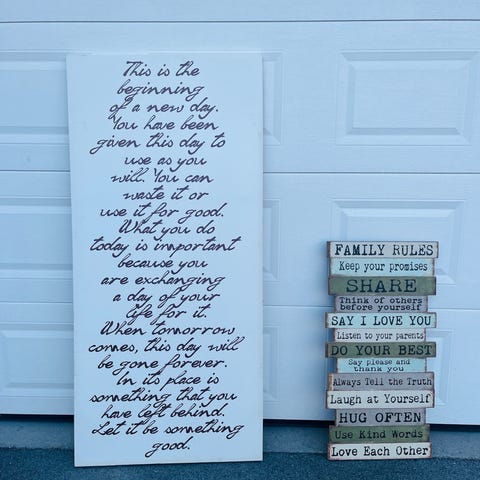 This is the
beginning
of a new day.
You have been
given this day to
use as you
will. You can
waste it or
use it for good.
What you do
today is important
because you
are exchanging
a day of your
life for it.
When tomorrow
comes, this day will
be gone forever.
In its place is
something that you
have left behind.
Let it be something
good.
FAMILY RULES
Keep your promises
SHARE
Think of others
before yourself
SAY I LOVE YOU
Listen to your parents
DO YOUR BEST
Say please and
thank you
Always Tell the Truth
Laugh at Yourself
HUG OFTEN
Use Kind Words
Love Each Other